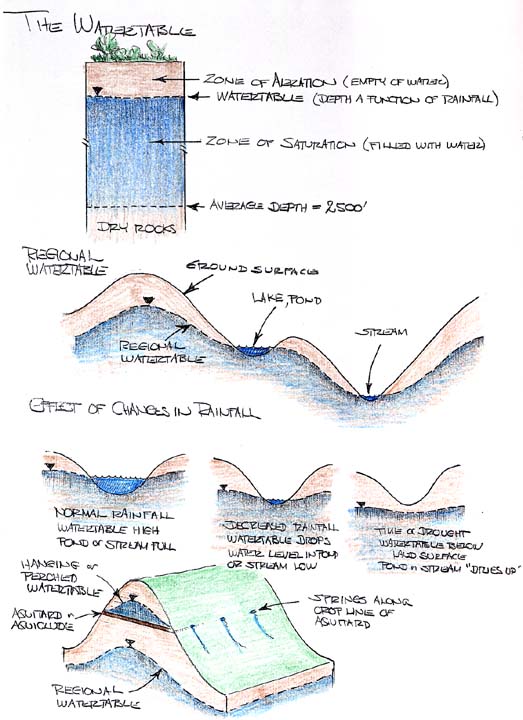 THE WATERTABLE
ZONE OF AERATION (EMPTY OF WATER)
WATERTABLE (DEPTH A FUNCTION OF RAINFALL)
ZONE OF SATURATION (FILLED WITH WATER)
AVERAGE DEPTH = 2500'
DRY ROCKS
REGIONAL
WATERTABLE
GROUND SURFACE
LAKE, POND
STREAM
REGIONAL
WATERTABLE
EFFECT OF CHANGES IN RAINFALL
NORMAL RAINFALL
WATERTABLE HIGH
POND OR STREAM FULL
DECREASED RAINFALL
WATERTABLE DROPS
WATER LEVEL IN POND
OR STREAM LOW
TIME OF DROUGHT
WATERTABLE BELOW
LAND SURFACE
POND OR STREAM "DRIES UP"
HANGING OR
PERCHED
WATERTABLE
AQUITARD OR
AQUICLUDE
SPRINGS ALONG
CROP LINE OF
AQUITARD
REGIONAL
WATERTABLE